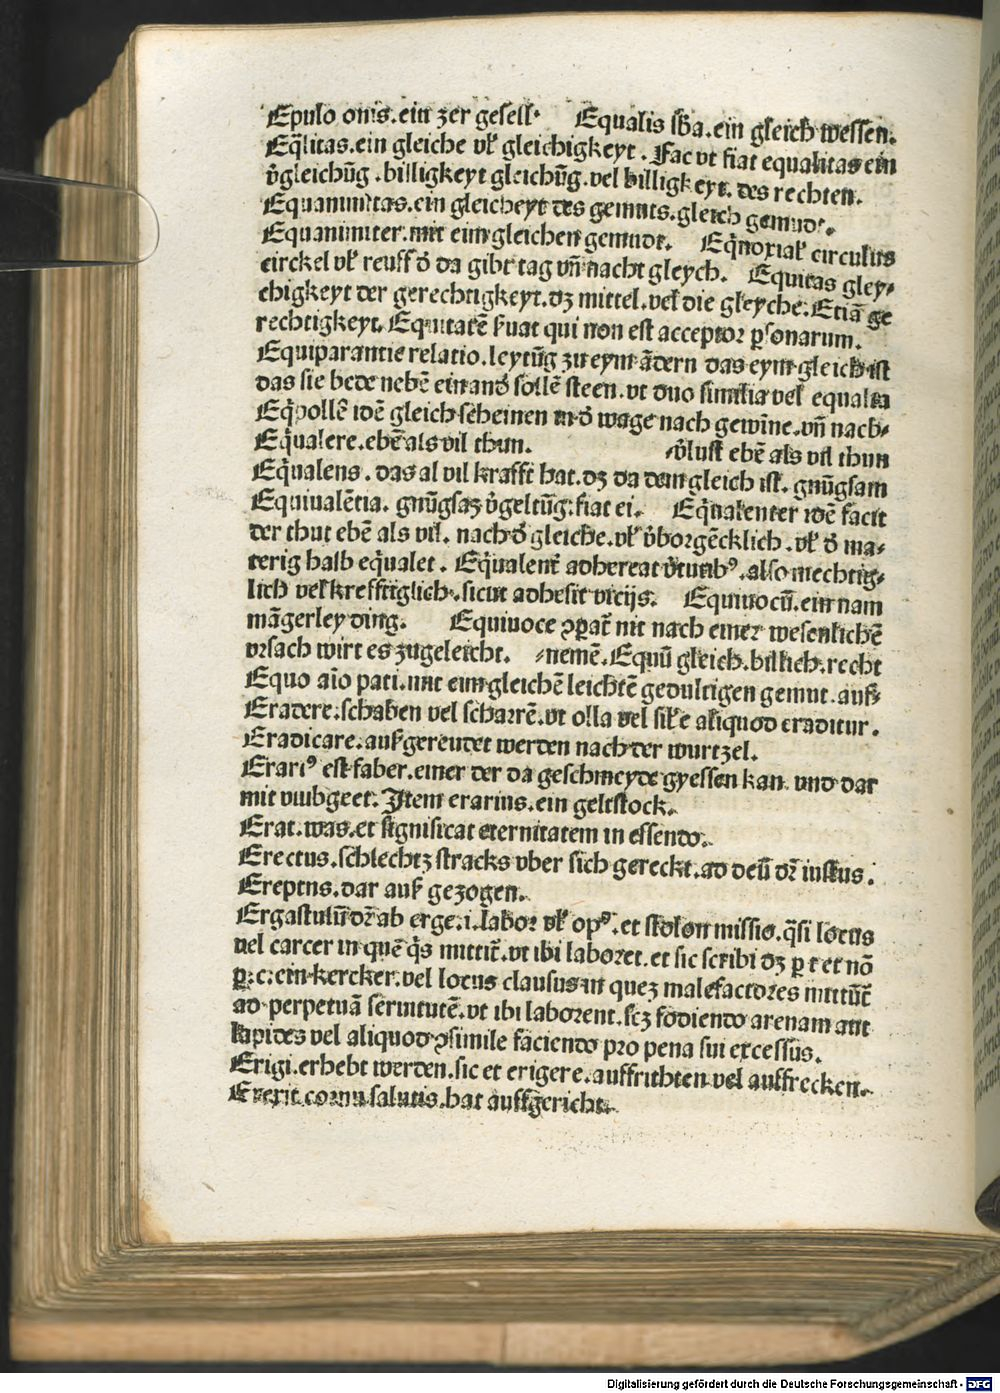 Epulo onis.ein zer gesell. Equalis sba.ein gleich wessen.
Eq̄litas.ein gleiche vl̕ gleichigkeyt. Fac vt fiat equalitas ein
v̕gleichūg.billigkeyt gleichūg.vel billigkeyt.des rechten.
Equanimitas.ein gleicheyt des gemuts.gleich gemudt.
Equanimiter.mit eim gleichen gemudt. Eq̄noxial̕ circulus
circkel vl̕ reuff d̕ da gibt tag vn̄ nacht gleych. Equitas gley⸗
chigkeyt der gerechtigkeyt.dz mittel.vel die gleyche.Etiā ge
rechtigkeyt.Equitatē s̕uat qui non est acceptor p̱sonarum.
Equiparantie relatio.leytūg zu eym ādern das eym gleich ist
das sie bede nebē einand̕ sollē steen.vt duo similia vel equalia
Eq̄pollē idē gleich scheinen in d̕ wage nach gewīne.vn̄ nach⸗
Eq̄ualere.ebē als vil thun. ⸗v̕lust ebē als vil thun
Eq̄ualens.das al vil krafft hat.dz da dem gleich ist.gnūgsam
Equiualētia.gnūgsaz v̕geltūg.fiat ei. Eq̄ualenter idē facit
der thut ebē als vil.nach d̕ gleiche.vl̕ v̕borgēcklich.vl̕ d̕ ma⸗
terig halb eq̄ualet. Eq̄ualent̄ adhereat v̕tutibꝰ.also mechtig⸗
lich vel krefftiglich.sicut adhesit vicijs. Equiuocū.ein nam
māgerley ding. Equiuoce ꝯpat̄ nit nach einer wesenlichē
vrsach wirt es zugeleicht. ⸗nemē.Equū gleich.billich.recht
Equo aīo pati.mit eim gleichē leichtē gedultigen gemut.auß⸗
Eradere.schaben vel scharrē.vt olla vel sil̕e aliquod eraditur.
Eradicare.auß gereutet werden nach der wurtzel.
Erariꝰ est faber.einer der da geschmeyde gyessen kan vnd dar
mit vmbgeet.Item erarius.ein geltstock.
Erat.was.et significat eternitatem in essendo.
Erectus.schlechtz stracks vber sich gereckt.ad deū dr̄ iustus.
Ereptus.dar auß gezogen.
Ergastulū dr̄ ab erge.i.labor vl̕ opꝰ.et stolon missio.q̄si locus
vel carcer in quē q̄s mittit̄.vt ibi laboret.et sic scribi dz p̱ t et nō
p̱.c.ein kercker.vel locus clausus in quez malefactores mittūt̄
ad perpetuā seruitutē.vt ibi laborent.scz fodiendo arenam aut
lapides vel aliquod ꝯsimile faciendo pro pena sui excessus.
Erigi.erhebt werden.sic et erigere.auffrichten vel auffrecken.
Erexit cornu salutis.hat auffgericht.
Digitalisierung gefördert durch die Deutsche Forschungsgemeinschaft - DFG